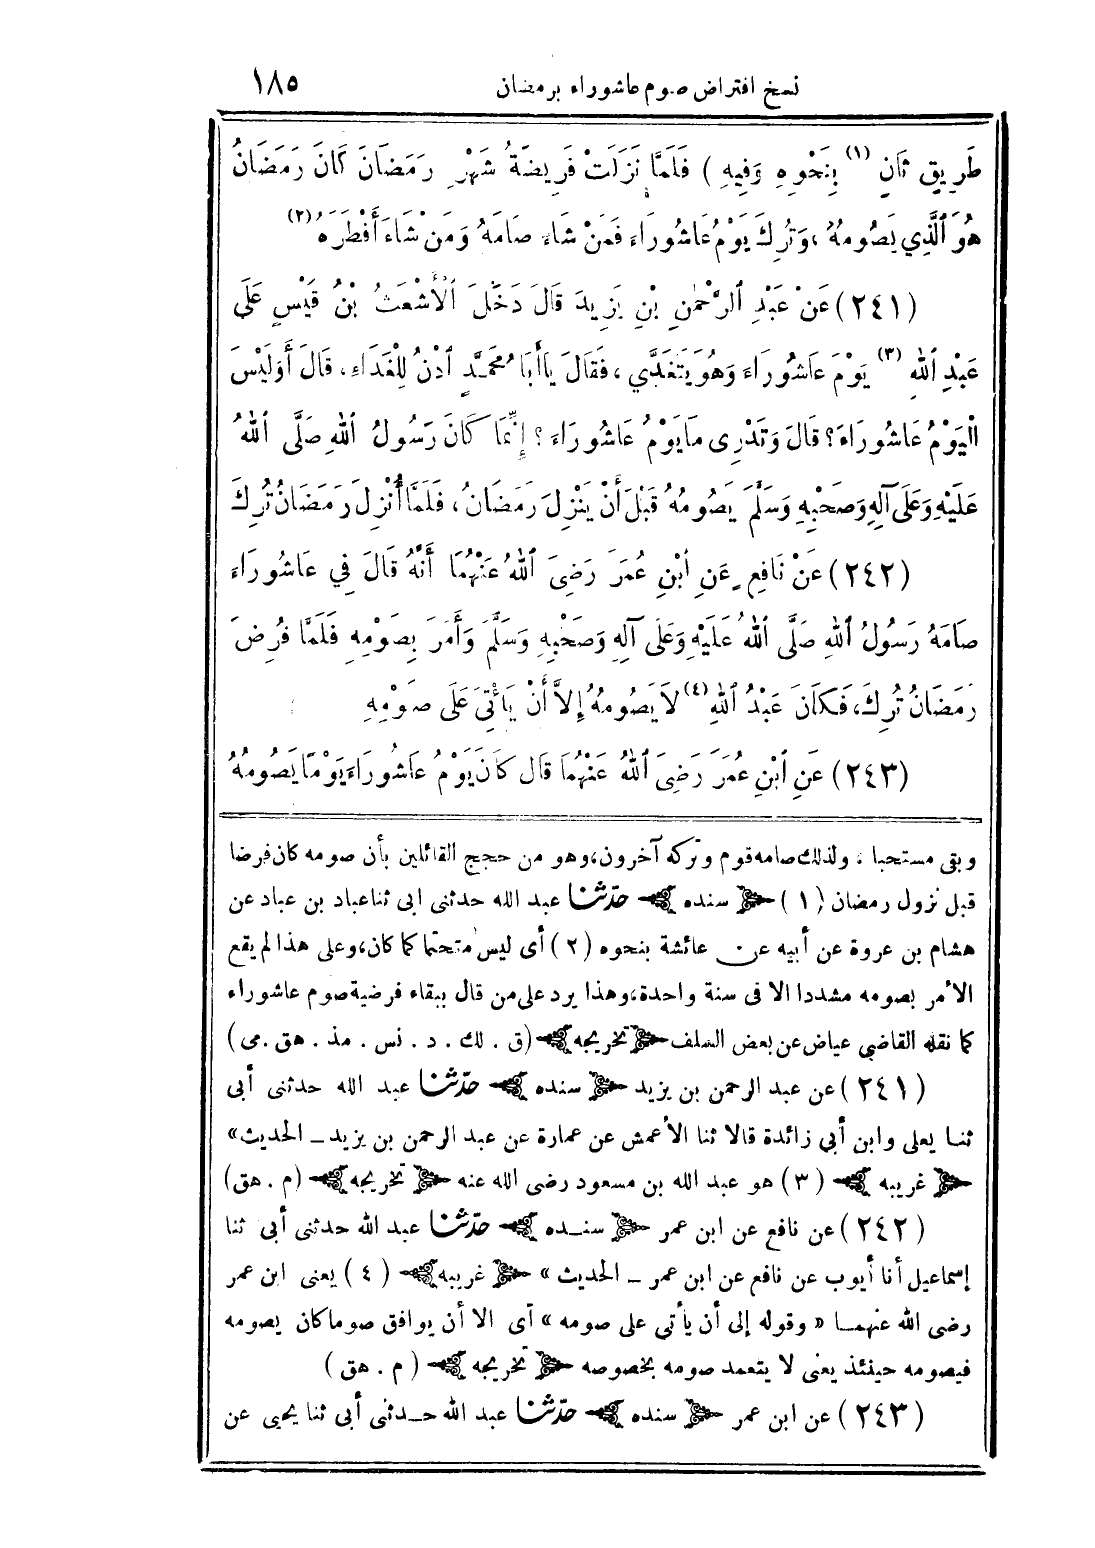 نسخ افتراض صوم عاشوراء برمضان ١٨٥
طَرِيقٍ ثَانٍ (١) بِنَحْوِهِ وَفِيهِ ) فَلَمَّا نَزَلَتْ فَرِيضَةُ شَهْرِ رَمَضَانَ كَانَ رَمَضَانُ
هُوَ ٱلَّذِي يَصُومُهُ، وَتُرِكَ يَوْمُ عَاشُورَاءَ فَمَنْ شَاءَ صَامَهُ وَمَنْ شَاءَ أَفْطَرَهُ (٢)
(٢٤١) عَنْ عَبْدِ ٱلرَّحْمٰنِ بْنِ يَزِيدَ قَالَ دَخَلَ ٱلْأَشْعَثُ بْنُ قَيْسٍ عَلَى
عَبْدِ ٱللهِ (٣) يَوْمَ عَاشُورَاءَ وَهُوَ يَتَغَدَّي، فَقَالَ يَاأَبَا مُحَمَّدٍ ٱدْنُ لِلْغَدَاءِ، قَالَ أَوَلَيْسَ
ٱلْيَوْمُ عَاشُورَاءَ؟ قَالَ وَتَدْرِى مَا يَوْمُ عَاشُورَاءَ؟ إِنَّمَا كَانَ رَسُولُ ٱللهِ صَلَّى ٱللهُ
عَلَيْهِ وَعَلَى آلِهِ وَصَحْبِهِ وَسَلَّمَ يَصُومُهُ قَبْلَ أَنْ يَنْزِلَ رَمَضَانُ، فَلَمَّا أُنْزِلَ رَمَضَانُ تُرِكَ
(٢٤٢) عَنْ نَافِعٍ عَنِ ٱبْنِ عُمَرَ رَضِىَ ٱللهُ عَنْهُمَا أَنَّهُ قَالَ فِي عَاشُورَاءَ
صَامَهُ رَسُولُ ٱللهِ صَلَّى ٱللهُ عَلَيْهِ وَعَلَى آلِهِ وَصَحْبِهِ وَسَلَّمَ وَأَمَرَ بِصَوْمِهِ فَلَمَّا فُرِضَ
رَمَضَانُ تُرِكَ، فَكَانَ عَبْدُ ٱللهِ (٤) لَا يَصُومُهُ إِلاَّ أَنْ يَأْتِيَ عَلَى صَوْمِهِ
(٢٤٣) عَنِ ٱبْنِ عُمَرَ رَضِىَ ٱللهُ عَنْهُمَا قَالَ كَانَ يَوْمُ عَاشُورَاءَ يَوْمًا يَصُومُهُ
وبقى مستحبا، ولذلك صامه قوم وتركه آخرون، وهو من حجج القائلين بأن صومه كان فرضا
قبل نزول رمضان (١) سنده حدّثنا عبد الله حدثنى ابى ثنا عباد بن عباد عن
هشام بن عروة عن أبيه عن عائشة بنحوه (٢) أى ليس متحتما كما كان، وعلى هذا لم يقع
الأمر بصومه مشددا الا فى سنة واحدة، وهذا يرد على من قال ببقاء فرضية صوم عاشوراء
كما نقله القاضي عياض عن بعض السلف تخريجه (ق . لك . د . نس . مذ . هق . مى)
(٢٤١) عن عبد الرحمن بن يزيد سنده حدّثنا عبد الله حدثنى أبى
ثنا يعلى وابن أبي زائدة قالا ثنا الأعمش عن عمارة عن عبد الرحمن بن يزيد ــ الحديث»
غريبه (٣) هو عبد الله بن مسعود رضى الله عنه تخريجه (م . هق)
(٢٤٢) عن نافع عن ابن عمر سنده حدّثنا عبد الله حدثنى أبى ثنا
إسماعيل أنا أيوب عن نافع عن ابن عمر ــ الحديث » غريبه (٤) يعنى ابن عمر
رضى الله عنهما « وقوله إلى أن يأتي على صومه » أى الا أن يوافق صوما كان يصومه
فيصومه حينئذ يعنى لا يتعمد صومه بخصوصه تخريجه (م . هق)
(٢٤٣) عن ابن عمر سنده حدّثنا عبد الله حدثنى أبى ثنا يحيى عن